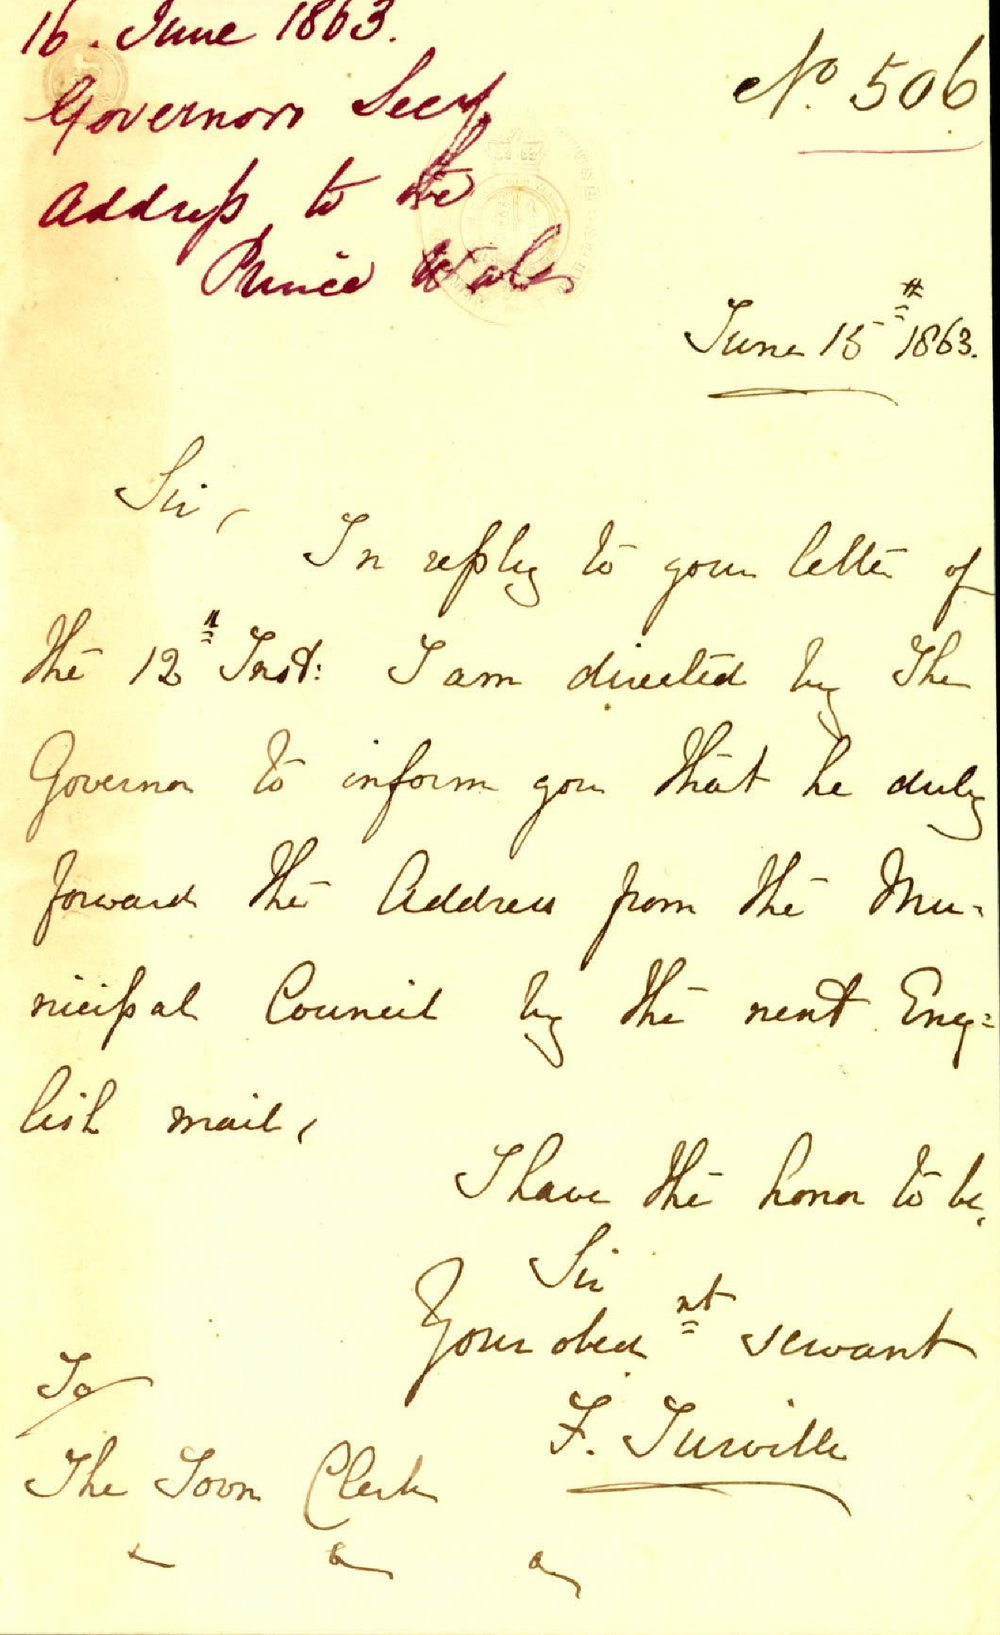 16. June 1863.
Governors Secy
Address to the
Prince Wales
No. 506
June 15th 1863.
Sir,
In reply to your letter of
the 12th Inst: I am directed by The
Governor to inform you that he duly
forward the Address from the Mu-
nicipal Council by the next Eng=
lish mail,
I have the honor to be,
Sir
Your obednt servant
F. Turville
To
The Town Clerk